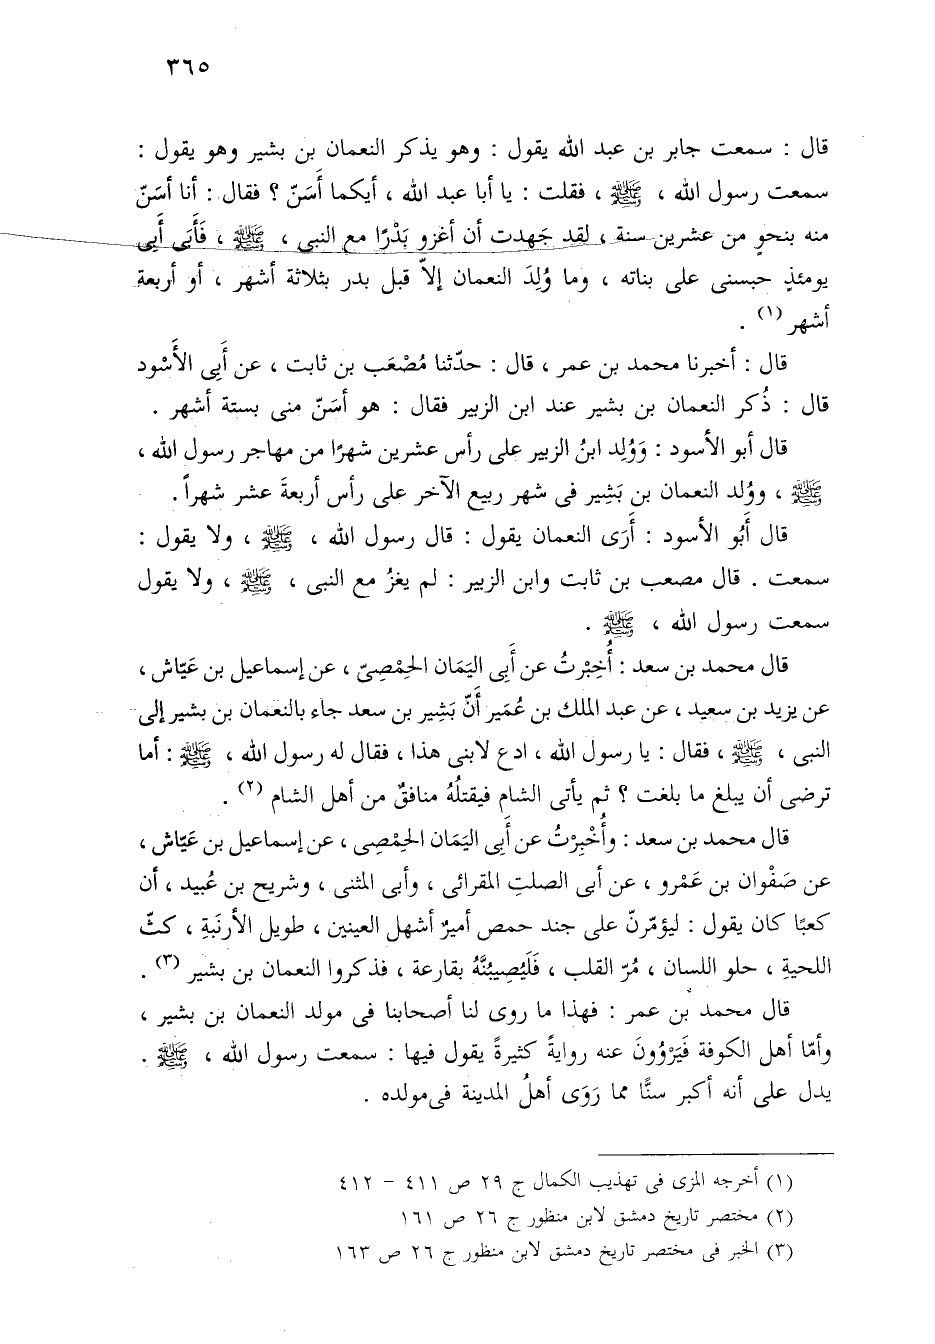 ٣٦٥
قال : سمعت جابر بن عبد الله يقول : وهو يذكر النعمان بن بشير وهو يقول :
سمعت رسول الله ، ﷺ ، فقلت : يا أبا عبد الله ، أيكما أَسَنّ ؟ فقال : أنا أسَنّ
منه بنحوٍ من عشرين سنة ، لقد جَهدت أن أغزو بَدْرًا مع النبى ، ﷺ ، فَأَبَى أَبِى
يومئذٍ حبسنى على بناته ، وما وُلِدَ النعمان إلاّ قبل بدر بثلاثة أشهر ، أو أربعة
أشهر (١) .
قال : أخبرنا محمد بن عمر ، قال : حدّثنا مُصْعَب بن ثابت ، عن أَبِى الأَسْود
قال : ذُكر النعمان بن بشير عند ابن الزبير فقال : هو أسَنّ منى بستة أشهر .
قال أبو الأسود : وَوُلِد ابنُ الزبير على رأس عشرين شهرًا من مهاجر رسول الله ،
ﷺ ، ووُلد النعمان بن بَشِير فى شهر ربيع الآخر على رأس أربعةَ عشر شهراً .
قال أَبُو الأسود : أَرَى النعمان يقول : قال رسول الله ، ﷺ ، ولا يقول :
سمعت . قال مصعب بن ثابت وابن الزبير : لم يغزُ مع النبى ، ﷺ ، ولا يقول
سمعت رسول الله ، ﷺ .
قال محمد بن سعد : أُخبِرْتُ عن أَبِى اليَمَان الحِمْصِىّ ، عن إسماعيل بن عَيّاش ،
عن يزيد بن سعيد ، عن عبد الملك بن عُمَير أَنّ بَشِير بن سعد جاء بالنعمان بن بشير إلى
النبى ، ﷺ ، فقال : يا رسول الله ، ادع لابنى هذا ، فقال له رسول الله ، ﷺ : أما
ترضى أن يبلغ ما بلغت ؟ ثم يأتى الشام فيقتلُهُ منافقٌ من أهل الشام (٢) .
قال محمد بن سعد : وأُخْبِرْتُ عن أَبِى اليَمَان الحِمْصِى ، عن إسماعيل بن عَيّاش ،
عن صَفْوان بن عَمْرو ، عن أبى الصلتِ المقرائى ، وأبى المثنى ، وشريح بن عُبيد ، أن
كعبًا كان يقول : ليؤمّرنّ على جند حمص أميرٌ أشهل العينين ، طويل الأرنَبةِ ، كثّ
اللحيةِ ، حلو اللسان ، مُرّ القلب ، فَلَيُصِيبُنَّهُ بقارعة ، فذكروا النعمان بن بشير (٣) .
قال محمد بن عمر : فهذا ما روى لنا أصحابنا فى مولد النعمان بن بشير ،
وأمّا أهل الكوفة فَيَرْوُونَ عنه روايةً كثيرةً يقول فيها : سمعت رسول الله ، ﷺ .
يدل على أنه أكبر سنًّا مما رَوَى أهلُ المدينة فى مولده .
(١) أخرجه المزى فى تهذيب الكمال ج ٢٩ ص ٤١١ – ٤١٢
(٢) مختصر تاريخ دمشق لابن منظور ج ٢٦ ص ١٦١
(٣) الخبر فى مختصر تاريخ دمشق لابن منظور ج ٢٦ ص ١٦٣